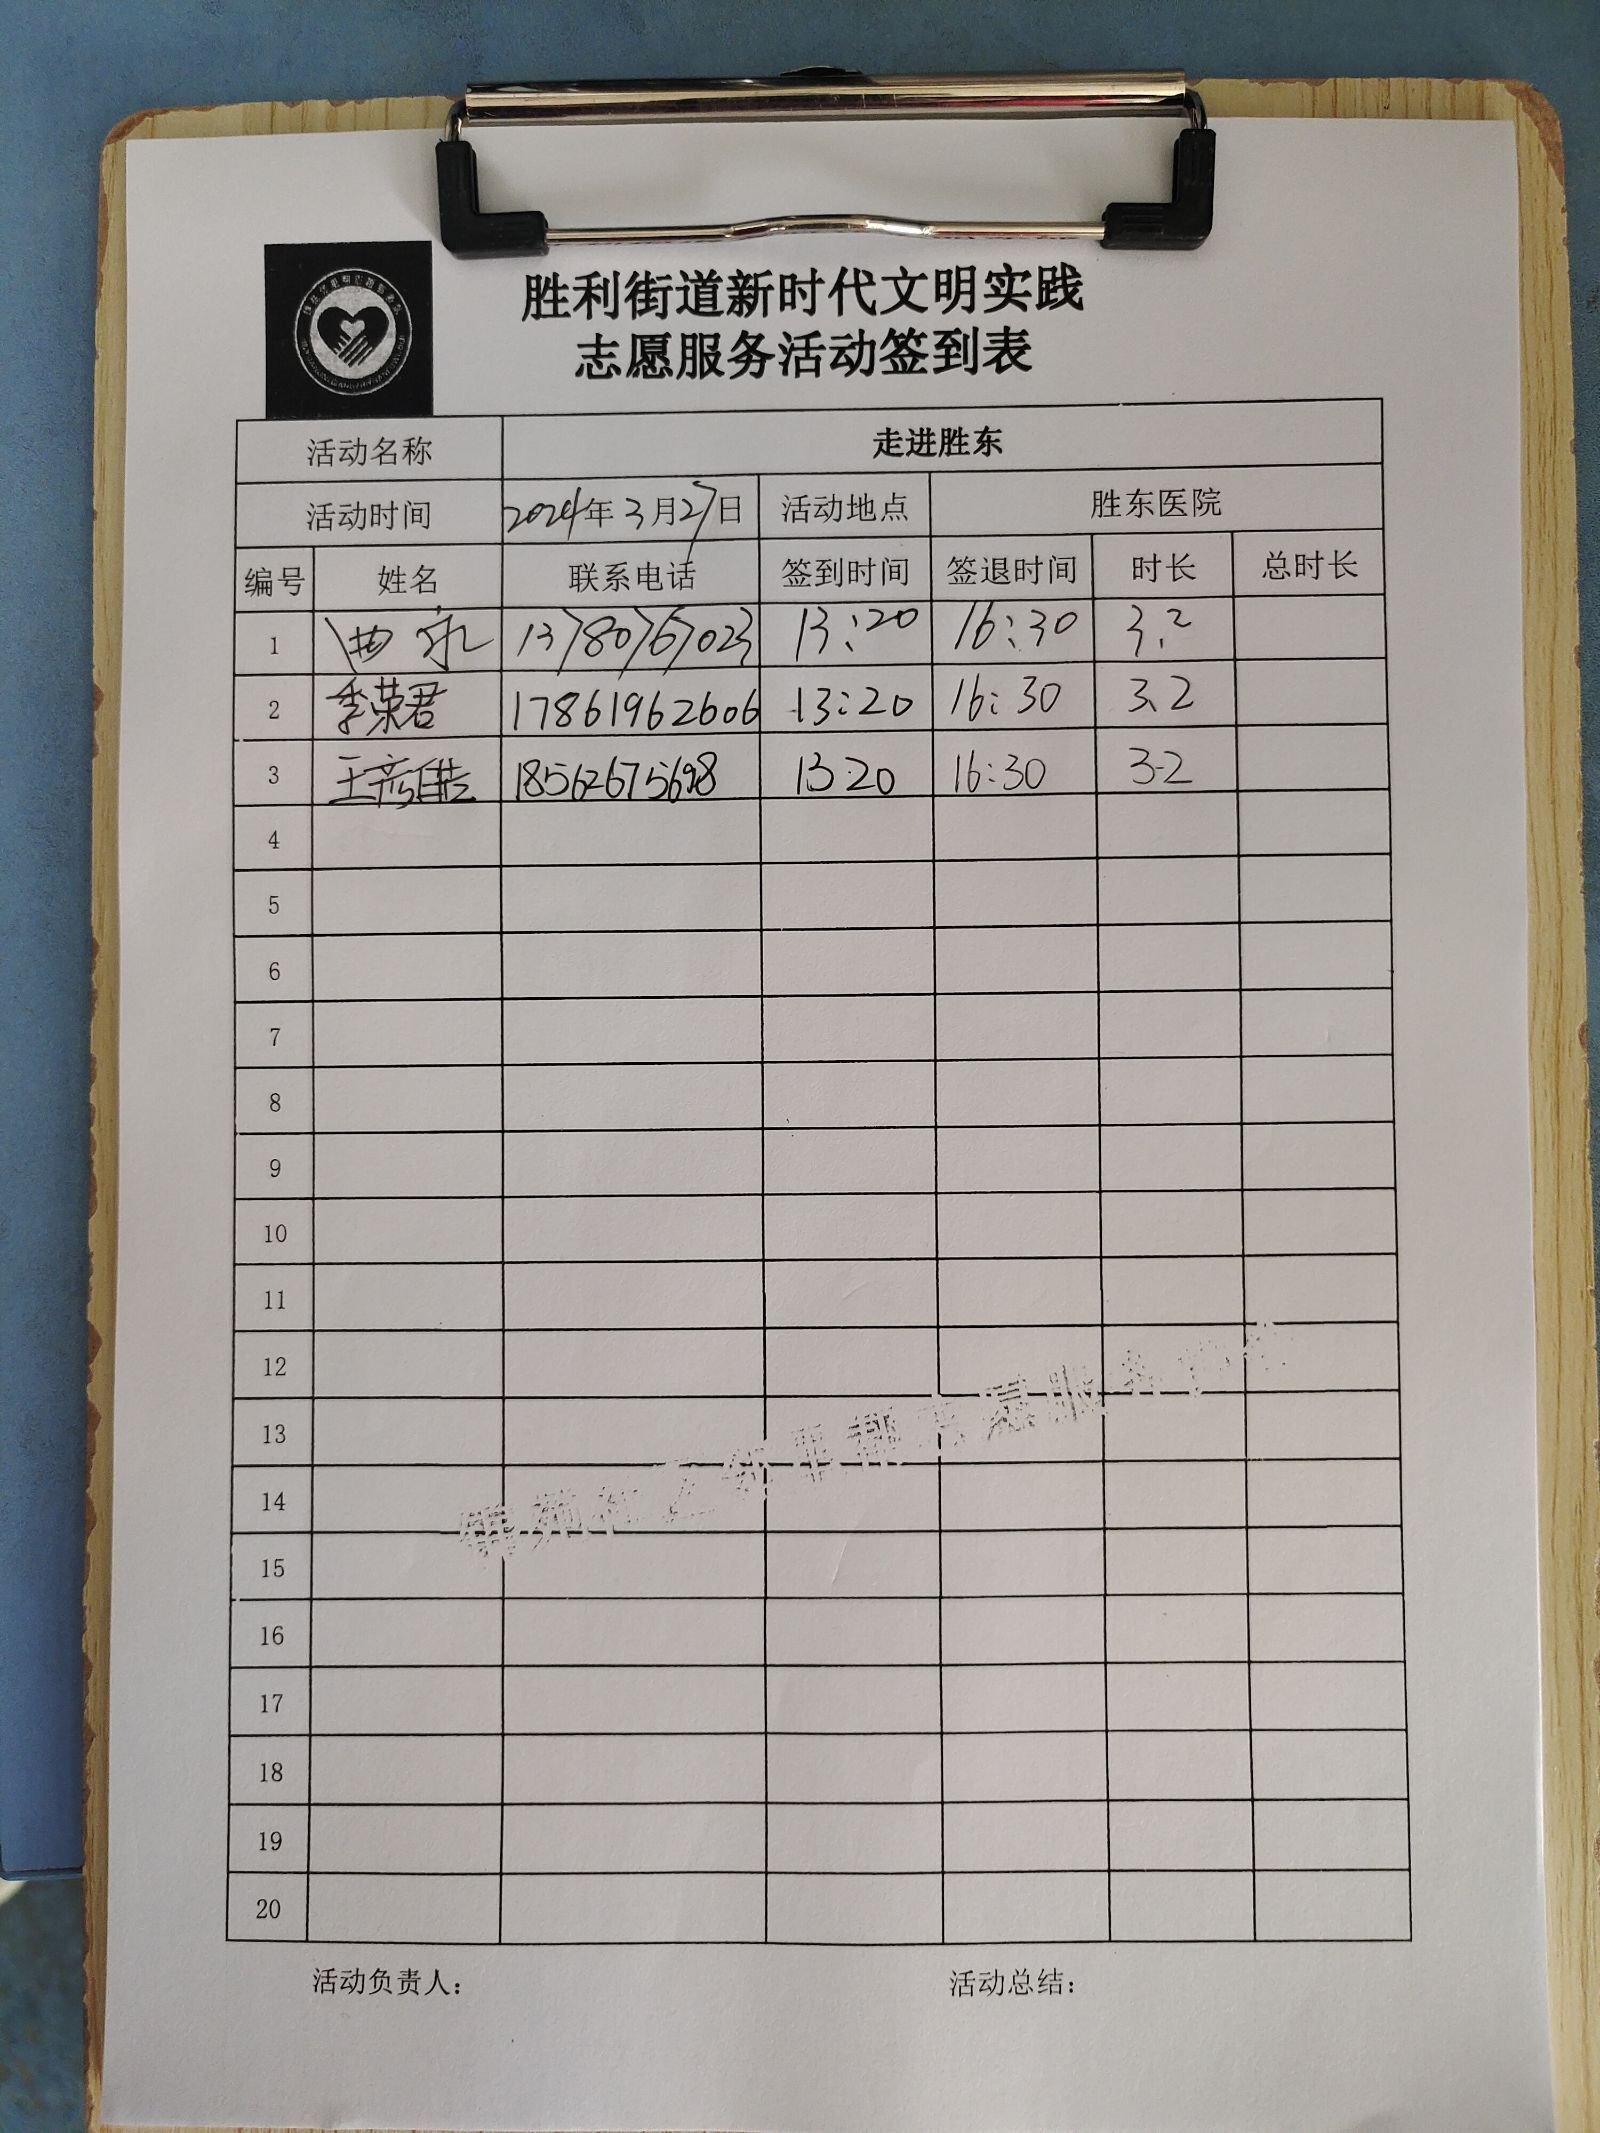 胜利街道新时代文明实践
志愿服务活动签到表
活动名称 走进胜东
活动时间 2024年3月27日 活动地点 胜东医院
编号 姓名 联系电话 签到时间 签退时间 时长 总时长
1 13780767023 13:20 16:30 3.2
2 李荣君 17861962606 13:20 16:30 3.2
3 18562675698 13:20 16:30 3.2
4
5
6
7
8
9
10
11
12
13
14
15
16
17
18
19
20
活动负责人: 活动总结: